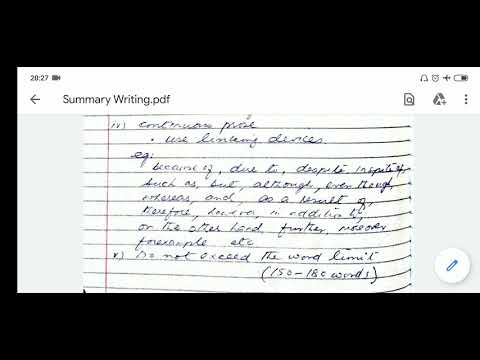 20:27
Summary Writing.pdf
iv) continuous prose
• use linking devices.
eg:
because of, due to, despite, inspite of,
such as, but, although, even though,
whereas, and, as a result of,
therefore, however, in addition to,
on the other hand, further, moreover
for example etc
v) Do not exceed the word limit
(150-180 words)